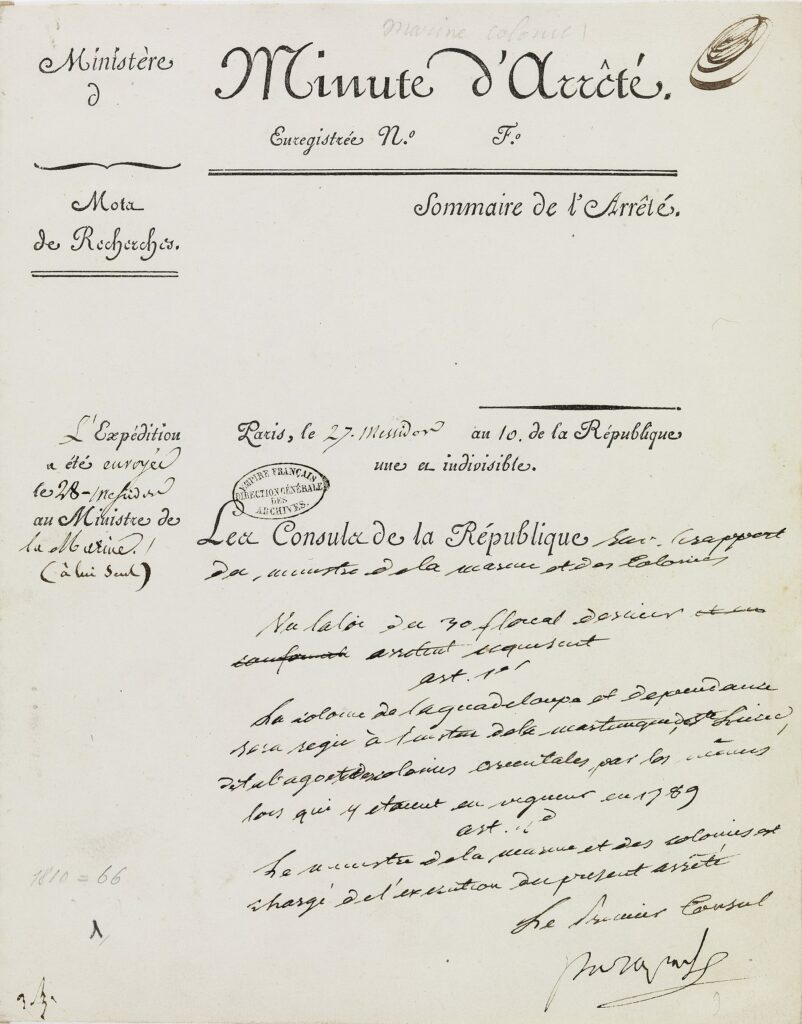 marine colonies
Ministère
d
Minute d'Arrêté.
Enregistrée N.o F.o
Mots
de Recherches.
Sommaire de l'Arrêté.
L'Expédition
a été envoyée
le 28 messidor
au Ministre de
la Marine.
(à lui seul)
Paris, le 27. Messidor au 10. de la République
une et indivisible.
EMPIRE FRANÇAIS
DIRECTION GÉNÉRALE
DES
ARCHIVES.
Les Consuls de la République sur le rapport
du ministre de la marine et des Colonies
Vu la loi du 30 floreal dernier et en
conformité arretent ce qui suit
art. 1er
La colonie de la guadeloupe et dependances
sera regie à l'instar de la martinique, de Ste Lucie,
de tabago et des colonies orientales par les mêmes
lois qui y etaient en vigueur en 1789
art. 2d
Le ministre de la marine et des colonies est
chargé de l'execution du present arrêté
Le Premier Consul
1810 = 66